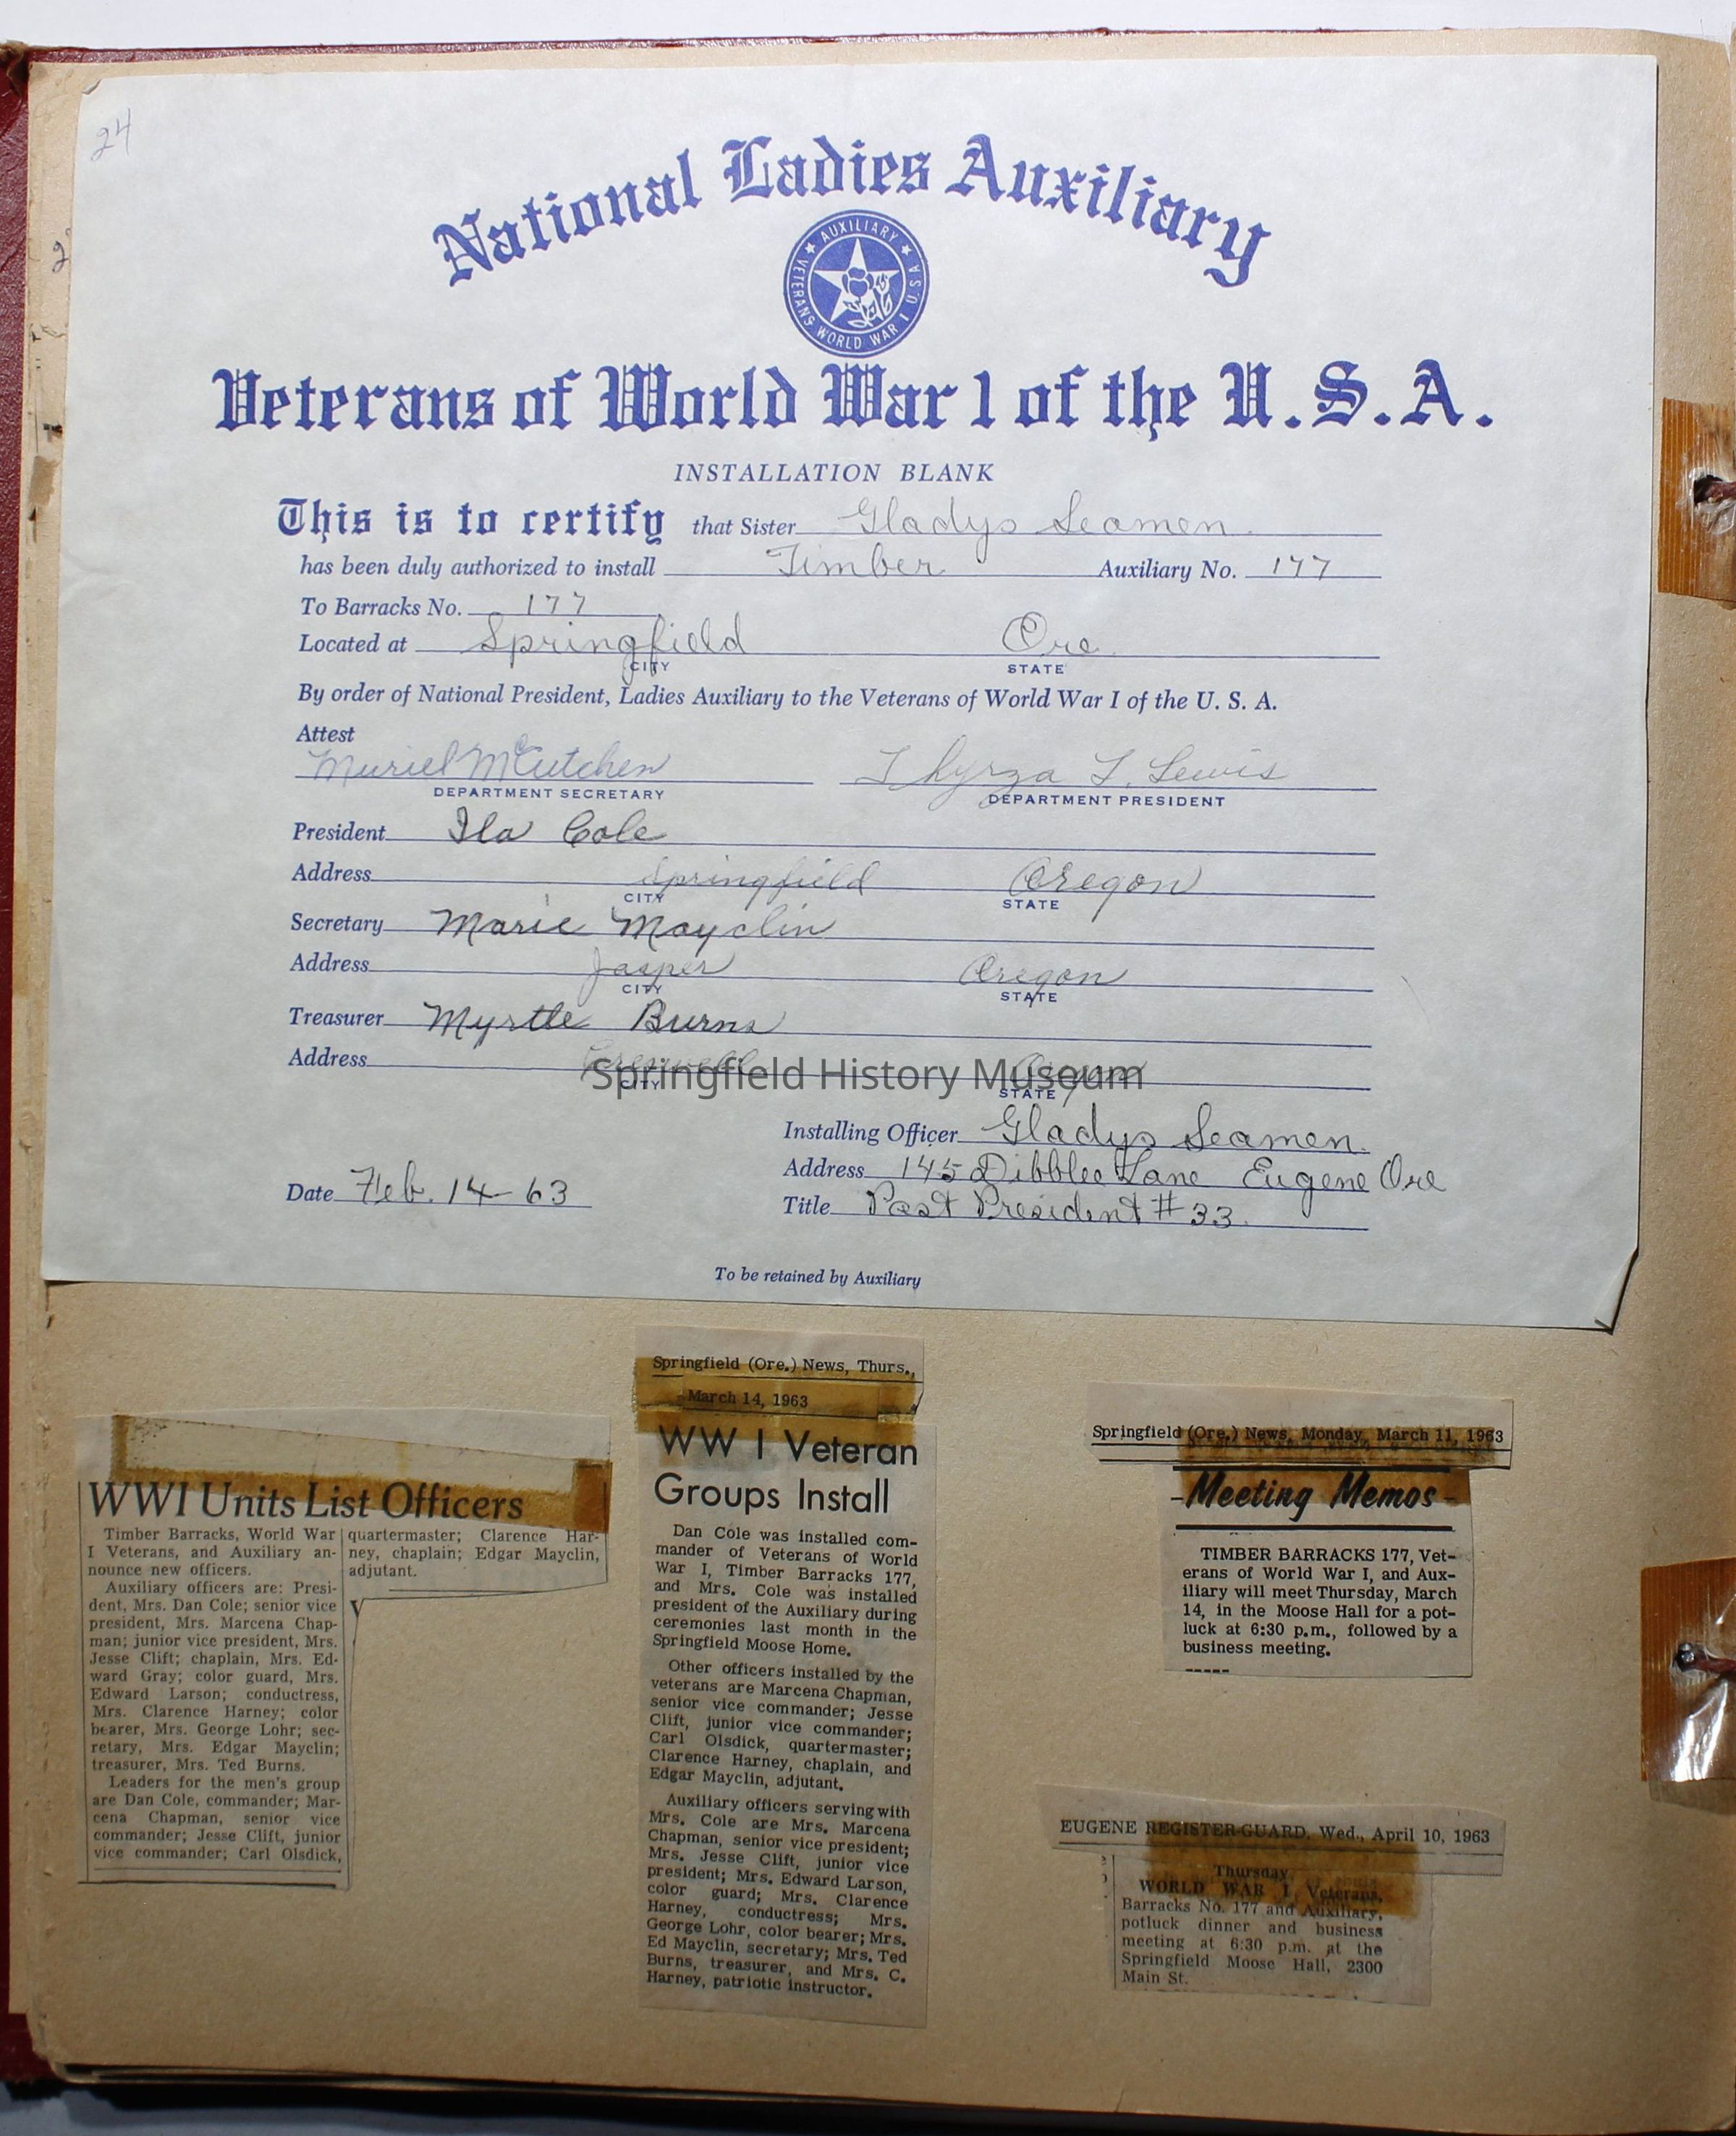 24
National Ladies Auxiliary
★ AUXILIARY ★ VETERANS WORLD WAR I U.S.A
Veterans of World War 1 of the U.S.A.
INSTALLATION BLANK
This is to certify that Sister Gladys Seamen
has been duly authorized to install Timber Auxiliary No. 177
To Barracks No. 177
Located at Springfield Ore.
CITY STATE
By order of National President, Ladies Auxiliary to the Veterans of World War I of the U. S. A.
Attest
Muriel McCutchen Thyrza L. Lewis
DEPARTMENT SECRETARY DEPARTMENT PRESIDENT
President Ila Cole
Address Springfield Oregon
CITY STATE
Secretary Marie Mayclin
Address Jasper Oregon
CITY STATE
Treasurer Myrtle Burns
Address Oregon
CITY STATE
Springfield History Museum
Installing Officer Gladys Seamen.
Address 145 Dibblee Lane Eugene Ore
Date Feb. 14-63
Title Past President #33.
To be retained by Auxiliary
WWI Units List Officers
Timber Barracks, World War
I Veterans, and Auxiliary an-
nounce new officers.
Auxiliary officers are: Presi-
dent, Mrs. Dan Cole; senior vice
president, Mrs. Marcena Chap-
man; junior vice president, Mrs.
Jesse Clift; chaplain, Mrs. Ed-
ward Gray; color guard, Mrs.
Edward Larson; conductress,
Mrs. Clarence Harney; color
bearer, Mrs. George Lohr; sec-
retary, Mrs. Edgar Mayclin;
treasurer, Mrs. Ted Burns.
Leaders for the men's group
are Dan Cole, commander; Mar-
cena Chapman, senior vice
commander; Jesse Clift, junior
vice commander; Carl Olsdick,
quartermaster; Clarence Har-
ney, chaplain; Edgar Mayclin,
adjutant.
Springfield (Ore.) News, Thurs.,
March 14, 1963
WW I Veteran
Groups Install
Dan Cole was installed com-
mander of Veterans of World
War I, Timber Barracks 177,
and Mrs. Cole was installed
president of the Auxiliary during
ceremonies last month in the
Springfield Moose Home.
Other officers installed by the
veterans are Marcena Chapman,
senior vice commander; Jesse
Clift, junior vice commander;
Carl Olsdick, quartermaster;
Clarence Harney, chaplain, and
Edgar Mayclin, adjutant.
Auxiliary officers serving with
Mrs. Cole are Mrs. Marcena
Chapman, senior vice president;
Mrs. Jesse Clift, junior vice
president; Mrs. Edward Larson,
color guard; Mrs. Clarence
Harney, conductress; Mrs.
George Lohr, color bearer; Mrs.
Ed Mayclin, secretary; Mrs. Ted
Burns, treasurer, and Mrs. C.
Harney, patriotic instructor.
Springfield (Ore.) News, Monday, March 11, 1963
-Meeting Memos-
TIMBER BARRACKS 177, Vet-
erans of World War I, and Aux-
iliary will meet Thursday, March
14, in the Moose Hall for a pot-
luck at 6:30 p.m., followed by a
business meeting.
EUGENE REGISTER-GUARD, Wed., April 10, 1963
Thursday
WORLD WAR I Veterans,
Barracks No. 177 and Auxiliary,
potluck dinner and business
meeting at 6:30 p.m. at the
Springfield Moose Hall, 2300
Main St.